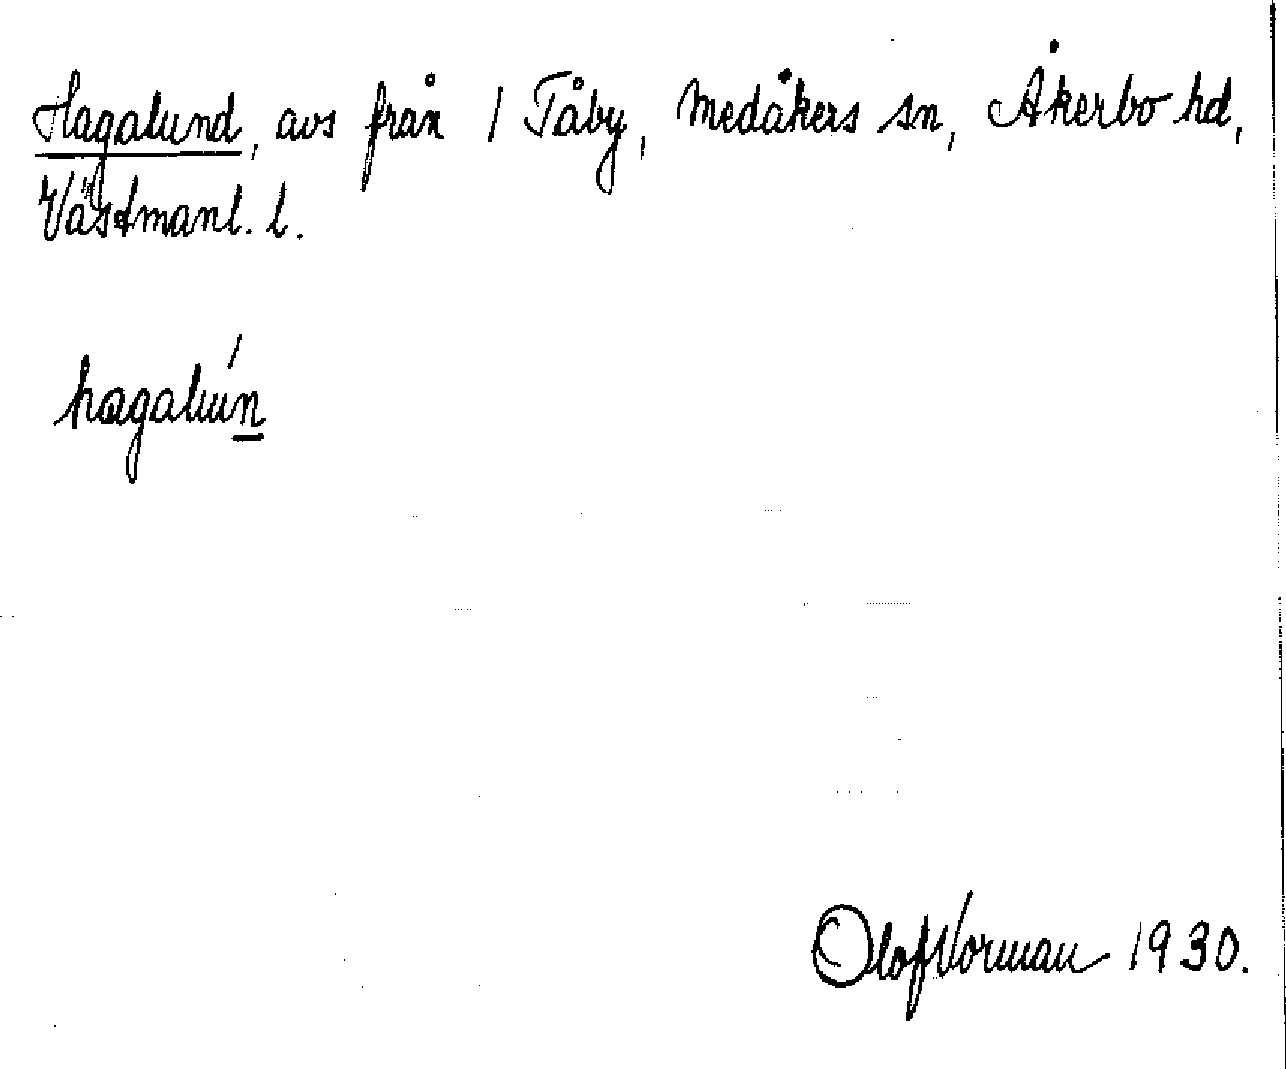 Hagalund, avs från 1 Tåby, Medåkers sn, Åkerbo hd,
Västmanl. l.
hagalún
Olof Norman 1930.